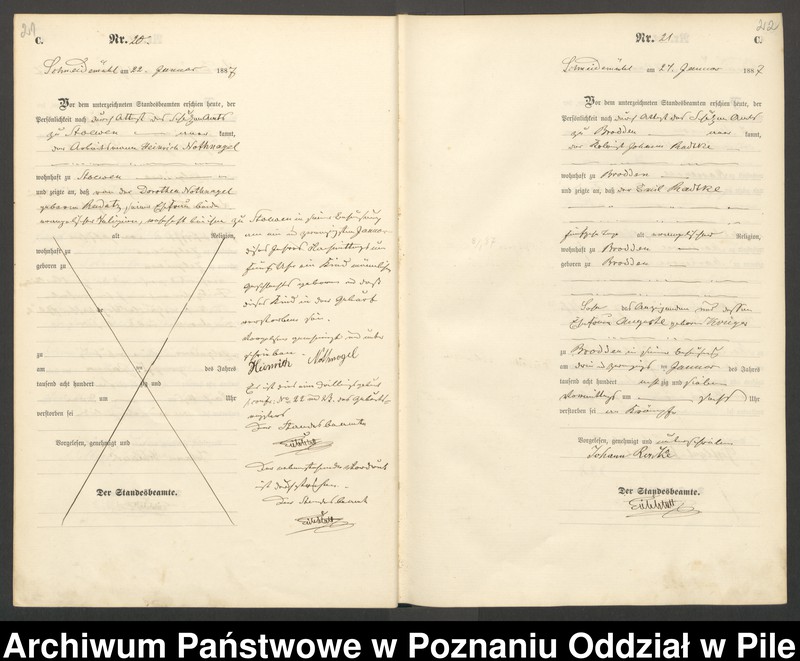 C.
Nr. 20.
Schneidemühl am 22. Januar 1887
Vor dem unterzeichneten Standesbeamten erschien heute, der
Persönlichkeit nach durch Attest des Schulzen Amts
zu Stoewen kannt,
der Arbeitsmann Heinrich Nothnagel
wohnhaft zu Stoewen
und zeigte an, daß von der Dorothea Nothnagel
geborenen seiner Ehefrau beide
evangelischer Religion, wohnhaft bei ihm zu Stoewen in seiner Behausung
am ein und zwanzigsten Januar
dieses Jahres Nachmittags um
fünf Uhr ein Kind männlichen
Geschlechts geboren und daß
dieses Kind in der Geburt
verstorben sei.
Vorgelesen genehmigt und unter
schrieben.
Heinrich Nothnagel
Es ist dies eine Drillingsgeburt
No 22 und 23 des Geburts
registers
Der Standesbeamte
Das nebenstehende Vordruck
ist durchstrichen.
Der Standesbeamte
alt Religion,
wohnhaft zu
geboren zu
zu
am des Jahres
tausend acht hundert zig und
um Uhr
verstorben sei
Vorgelesen, genehmigt und
Der Standesbeamte.
212
C.
Nr. 21
Schneidemühl am 24. Januar 1887
Vor dem unterzeichneten Standesbeamten erschien heute, der
Persönlichkeit nach durch Attest des Schulzen Amts
zu Brodden kannt,
der Johann Radtke
wohnhaft zu Brodden
und zeigte an, daß der Emil Radtke
fünf Tage alt evangelischer Religion,
wohnhaft zu Brodden
geboren zu Brodden
Sohn des Anzeigenden und dessen
Ehefrau Auguste geborene Krüger
zu Brodden in seiner Behausung
am drei und zwanzigsten Januar des Jahres
tausend acht hundert achtzig und sieben
Vormittags um Uhr
verstorben sei an Krämpfe
Vorgelesen, genehmigt und unterschrieben
Johann
Der Standesbeamte.
Archiwum Państwowe w Poznaniu Oddział w Pile